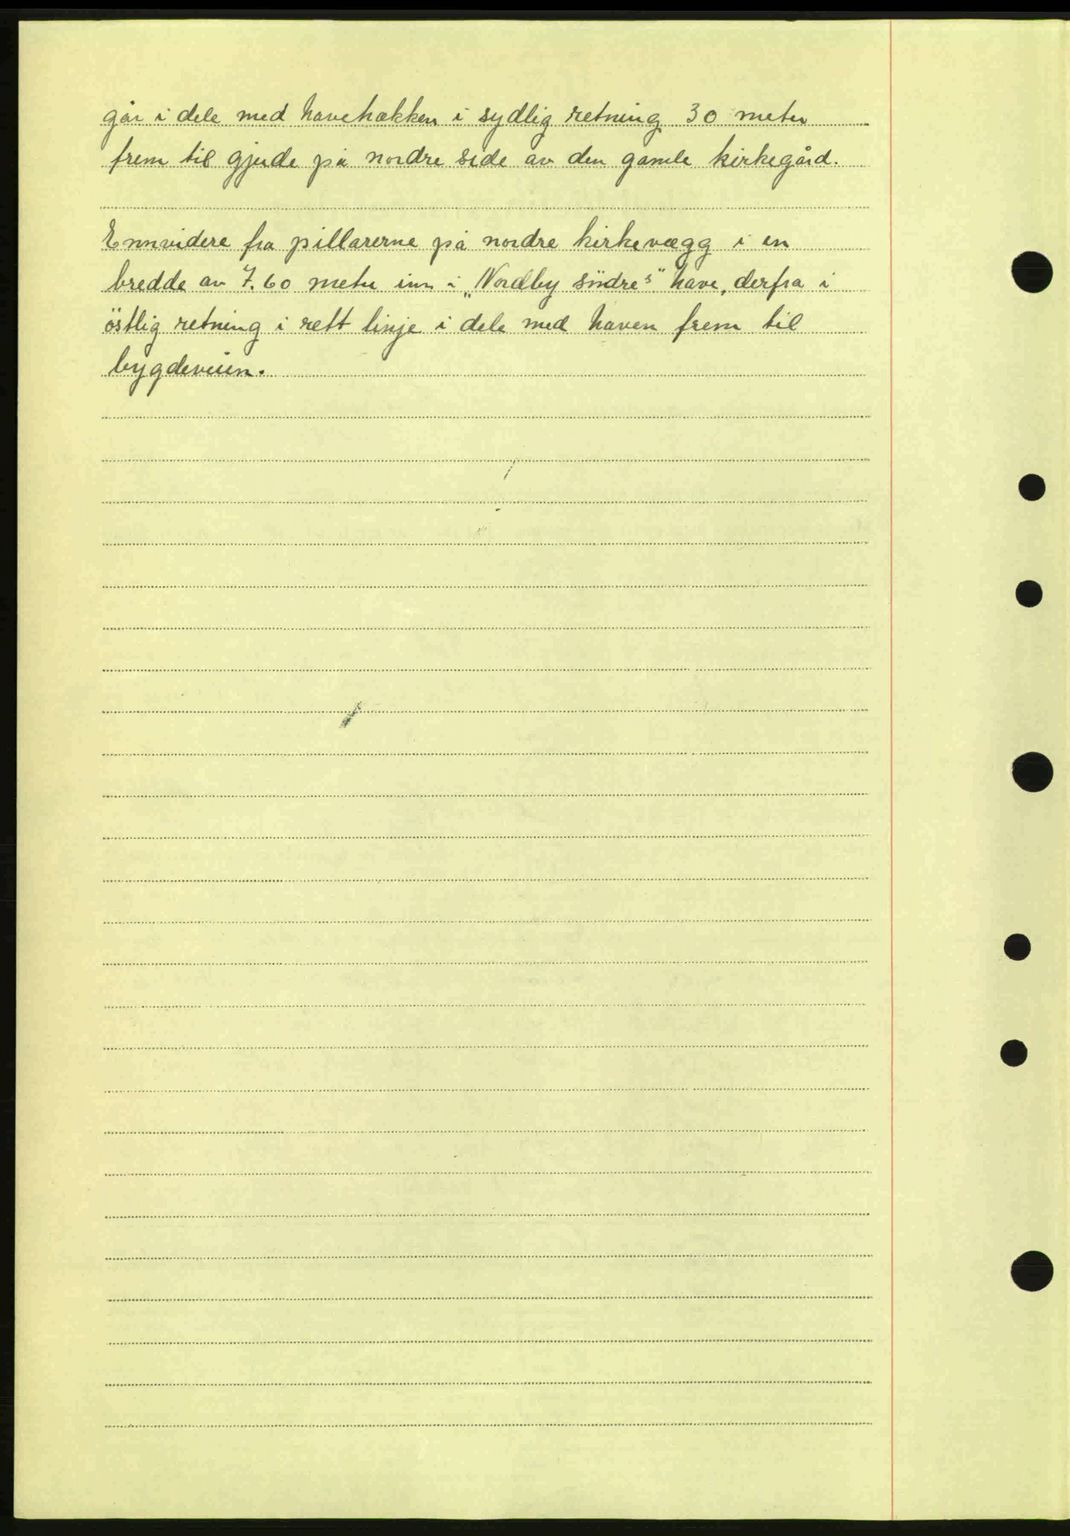 går i dele med havehækken i sydlig retning 30 meter
frem til gjerde på nordre side av den gamle kirkegård.
Ennvidere fra pillarerne på nordre kirkevægg i en
bredde av 7.60 meter inn i „Nordby söndres“ have, derfra i
östlig retning i rett linje i dele med haven frem til
bygdeveien.